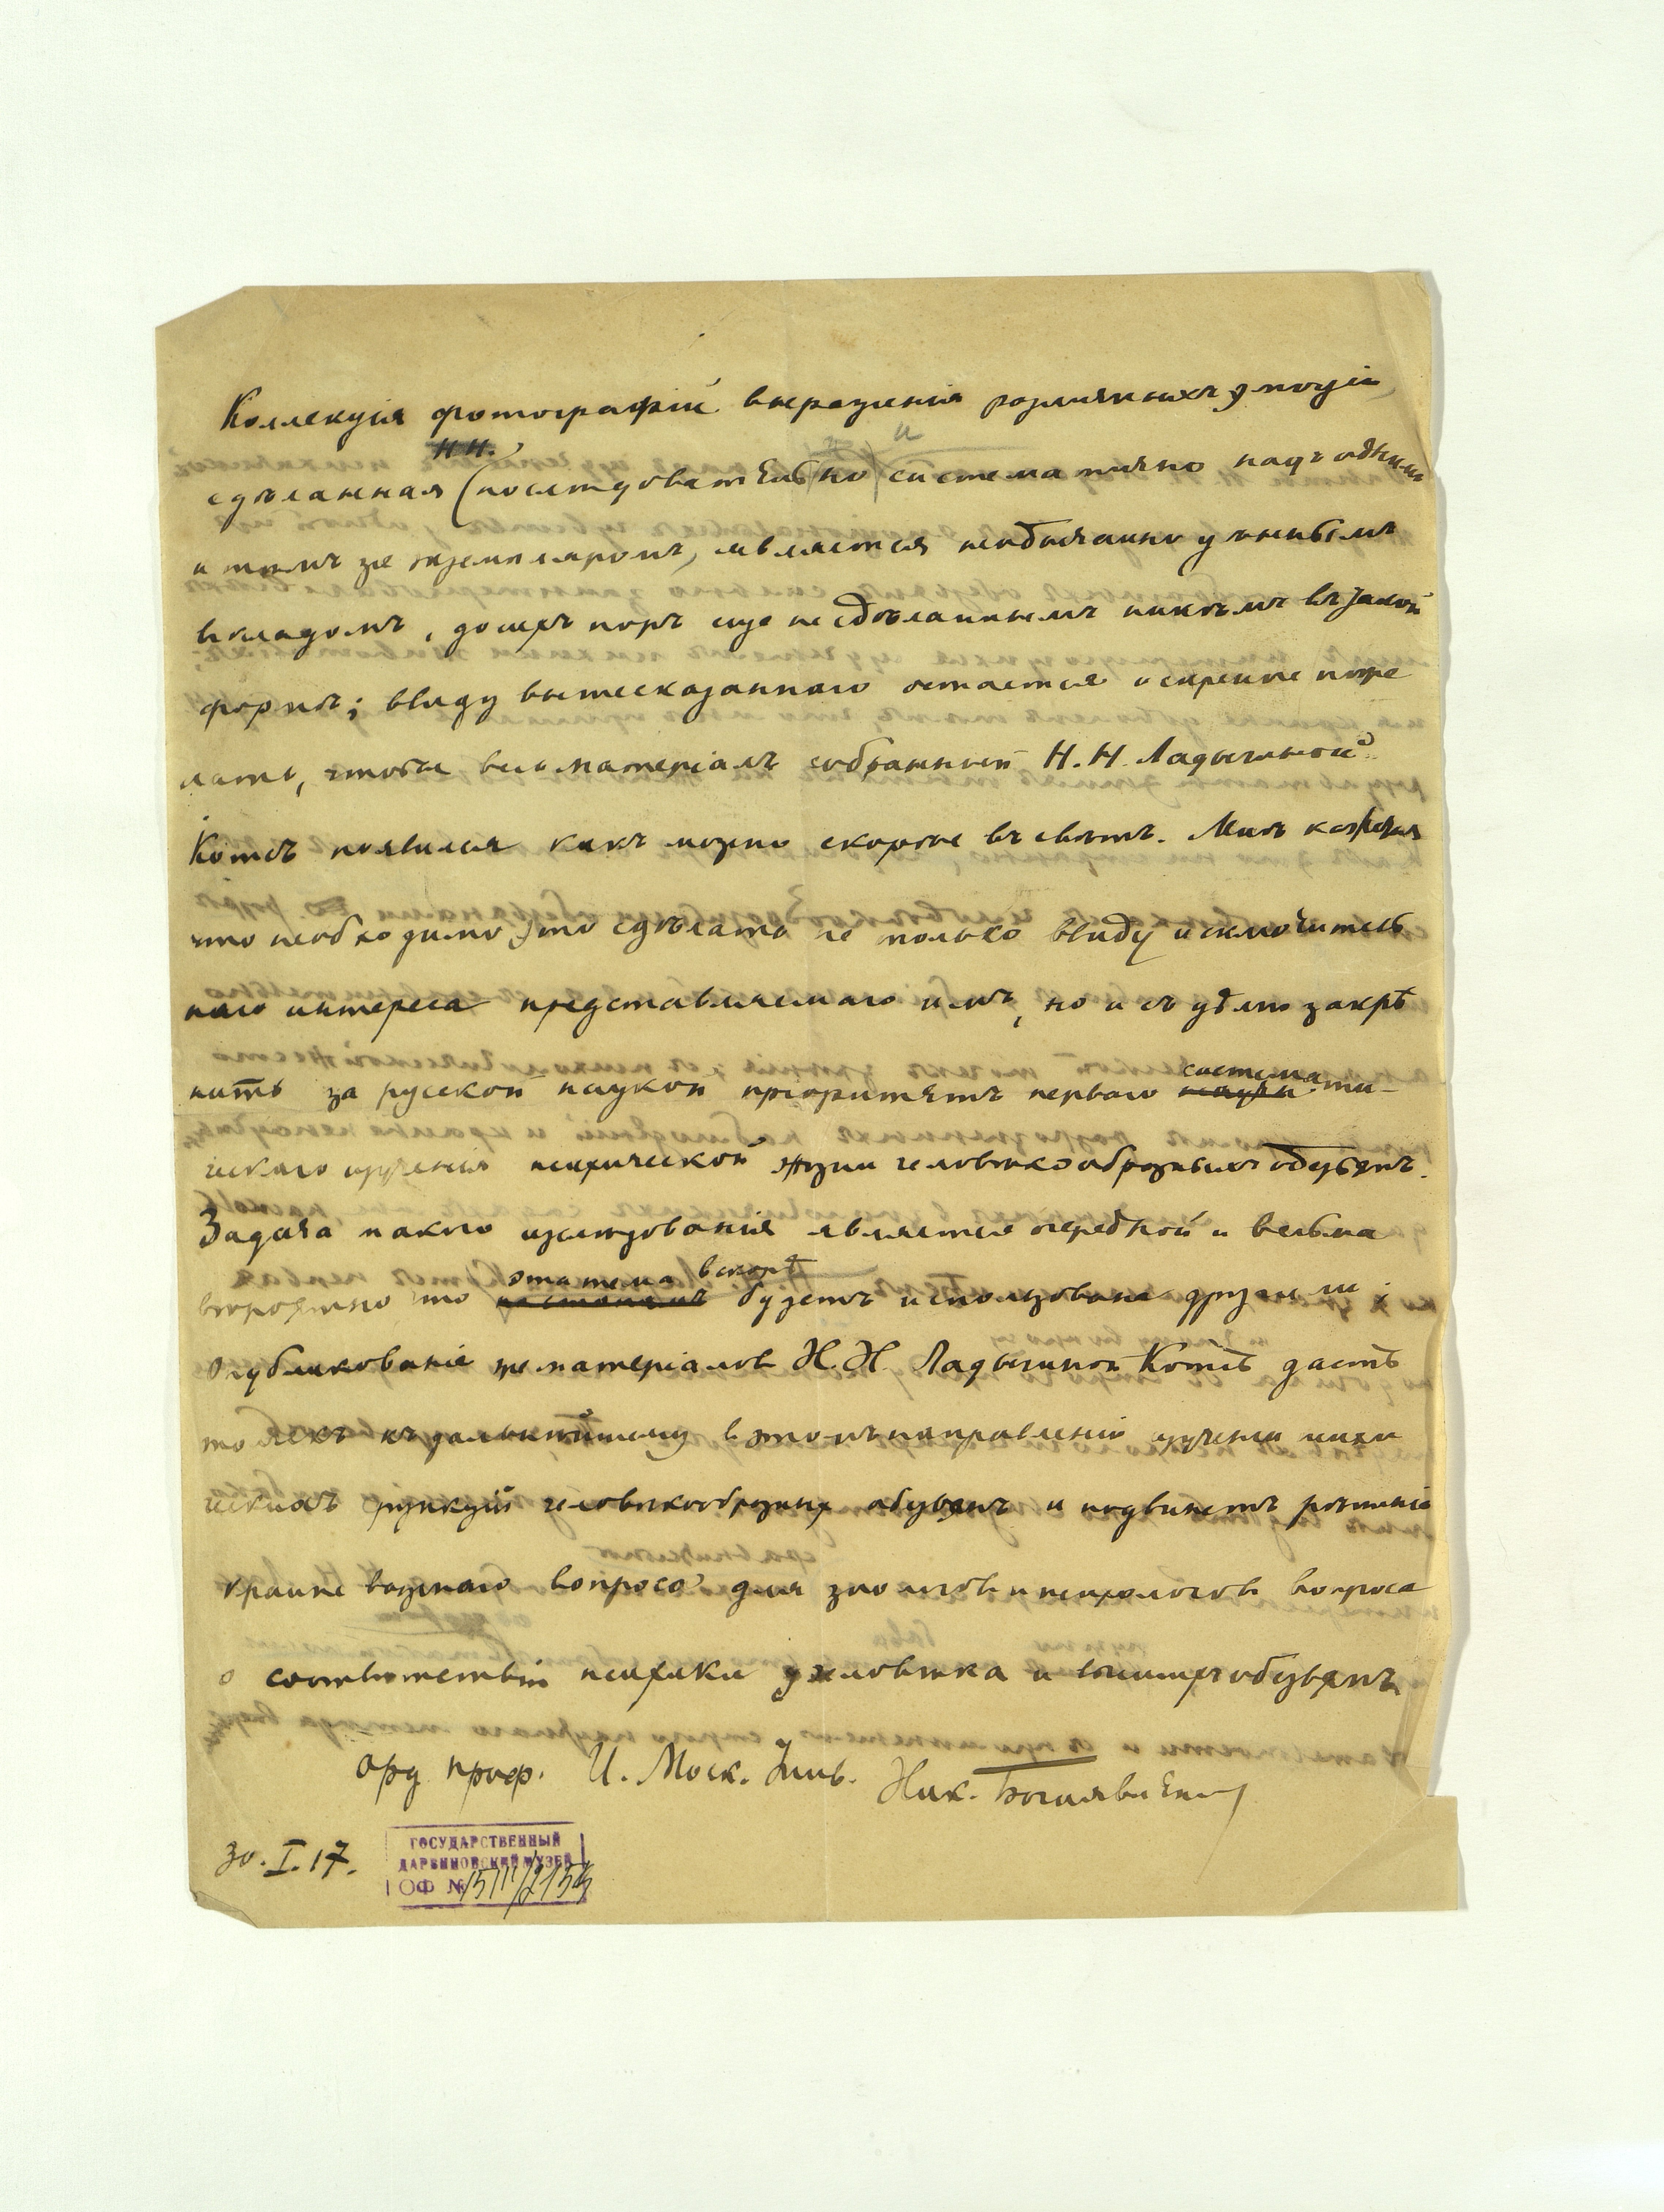 Коллекція фотографій выраженія различныхъ эмоцій,
Н.Н.
сдѣланная (послѣдовательно) и систематично надъ однимъ
и тѣмъ же экземпляромъ, является необычайно цѣннымъ
вкладомъ, до сихъ поръ еще не сдѣланнымъ никѣмъ въ такой
формѣ; ввиду вышесказаннаго остается искренне поже
лать, чтобы весь матеріалъ собранный Н.Н. Ладыгиной
Котсъ появился какъ можно скорѣе въ свѣтъ. Мнѣ кажется
что необходимо это сдѣлать не только ввиду исключитель
наго интереса представляемаго имъ, но и съ цѣлью закрѣ
система
пить за русской наукой пріоритетъ перваго научн ти-
ческаго изученія психической жизни человѣкообразныхъ обезьянъ.
Задача такого изслѣдованія является очередной и весьма
эта тема вскорѣ
вѣроятно что будетъ использована другими;
Опубликованіе же матеріаловъ Н.Н. Ладыгиной Котсъ дастъ
толчекъ къ дальнѣйшему в этомъ направленіи изученію психи
ческихъ функцій человѣкообразныхъ обезьянъ и подвинетъ рѣшеніе
крайне важнаго вопроса для зоологовъ и психологовъ вопроса
о соотвѣтствіи психики человѣка и высшихъ обезьянъ.
Орд. проф. И. Моск. Унив. Ник. Богоявленскій
30.I.17.
ГОСУДАРСТВЕННЫЙ
ДАРВИНОВСКИЙ МУЗЕЙ
ОФ №